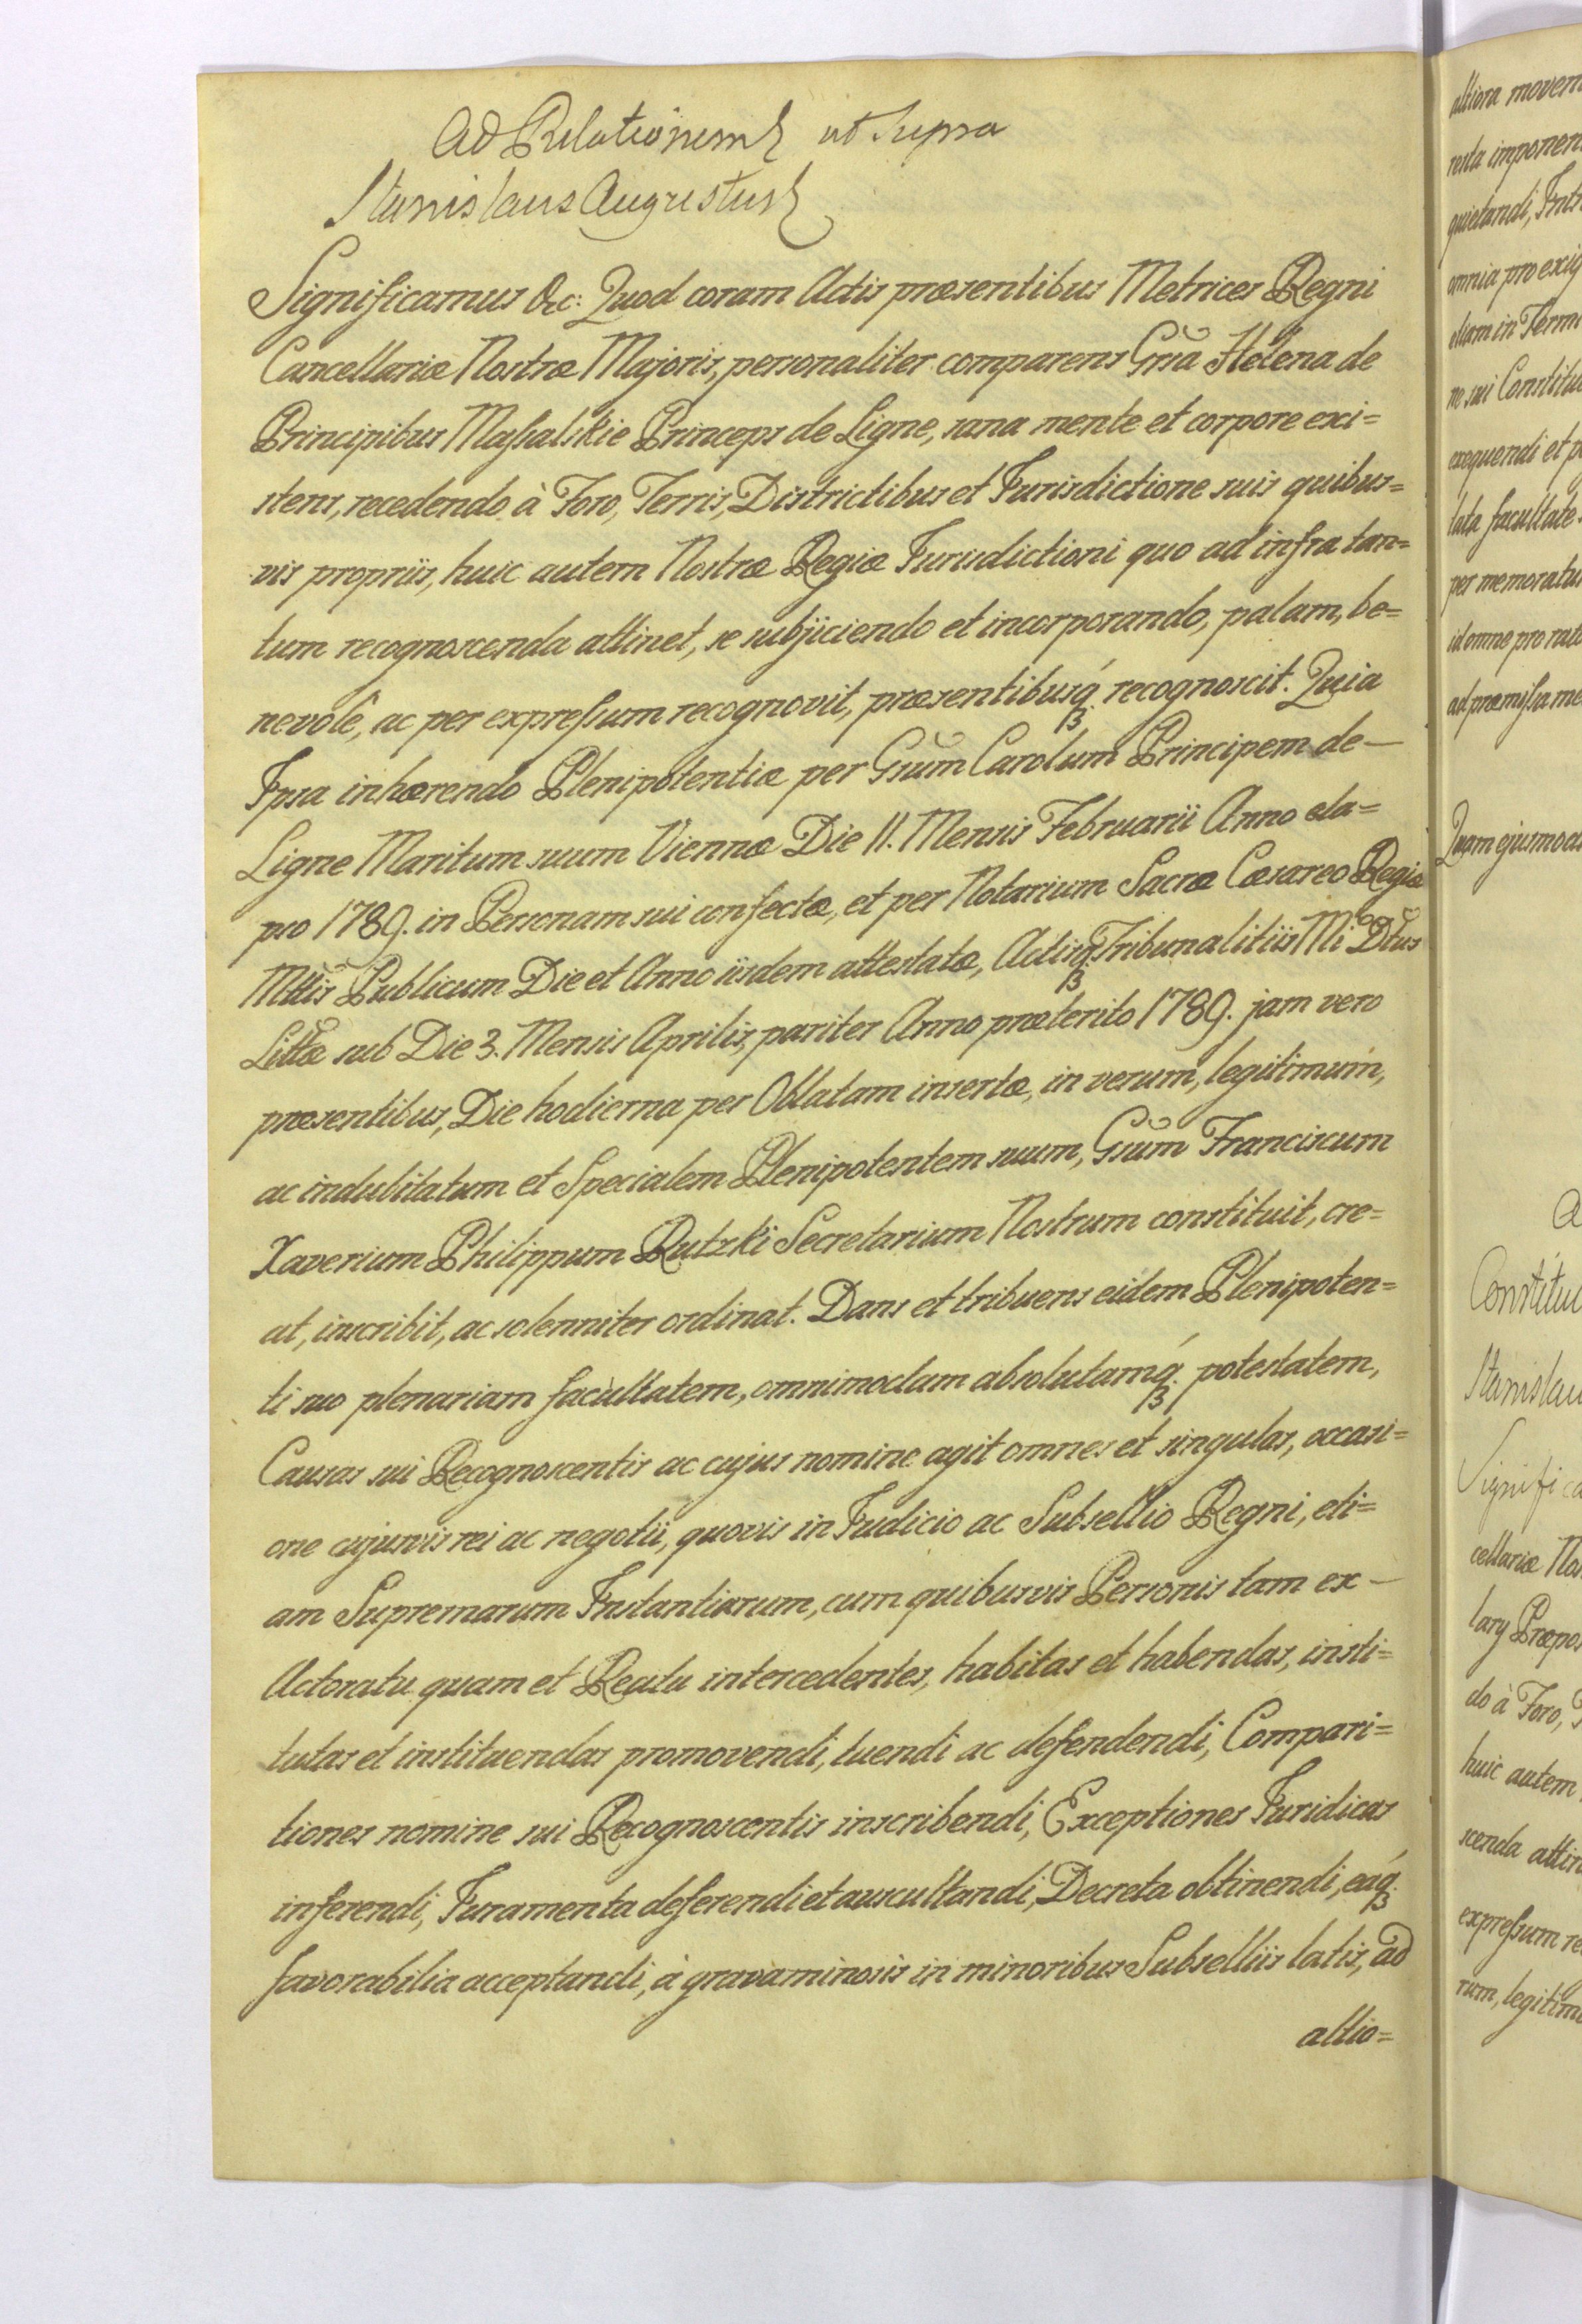 Ad Relationem ut supra
Stanislaus Augustus
Significamus &c: Quod coram Actis præsentibus Metrices Regni
Cancellariæ Nostræ Majoris, personaliter comparens Gsa Helena de
Principibus Massalskie Princeps de Ligne, sana mente et corpore exi=
stens, recedendo à Foro, Terris, Districtibus et Jurisdictione suis quibus=
vis propriis, huic autem Nostræ Regiæ Jurisdictioni quo ad infra tan=
tum recognoscenda attinet, se subjiciendo et incorporando, palam, be=
nevolê, ac per expressum recognovit, præsentibusq́ꝫ recognoscit. Quia
Ipsa inhærendo Plenipotentiæ per Gsum Carolum Principem de—
Ligne Maritum suum Viennæ Die 11. Mensis Februarii Anno ela=
pso 1789. in Personam sui confectæ, et per Notarium Sacræ Cæsareo Regiæ
Mttis Publicum Die et Anno iisdem attestatæ, Actisq́ꝫ Tribunalitiis Mi Dtus
Littæ sub Die 3. Mensis Aprilis, pariter Anno præterito 1789. jam vero
præsentibus, Die hodierna per Oblatam insertæ, in verum, legitimum,
ac indubitatum et Specialem Plenipotentem suum, Gsum Franciscum
Xaverium Philippum Rutzki Secretarium Nostrum constituit, cre=
at, inscribit, ac solenniter ordinat. Dans et tribuens eidem Plenipoten=
ti suo plenariam facultatem, omnimodam absolutamq́ꝫ potestatem,
Causas sui Recognoscentis ac cujus nomine agit omnes et singulas, occasi=
one cujusvis rei ac negotii, quovis in Judicio ac Subsellio Regni, eti=
am Supremarum Instantiarum, cum quibusvis Personis tam ex—
Actoratu quam et Reatu intercedentes, habitas et habendas, insti=
tutas et instituendas promovendi, tuendi ac defendendi, Compari=
tiones nomine sui Recognoscentis inscribendi, Exceptiones Juridicas
inferendi, Juramenta deferendi et auscultandi, Decreta obtinendi, eaq́ꝫ
favorabilia acceptandi, à gravaminosis in minoribus Subselliis latis, ad
altio=
altiora moven
imponen
quietandi,
omnia pro exig
etiam in Term
ne sui Constitu
exequendi et p
lata facultate
per memoratu
id omne pro rato
ad præmissa me
Quam ejusmodi
Constitu
Stanislau
Significa
cellariæ No
lary Præpos
do à Foro,
huic autem
scenda attin
expressum re
rum, legitim